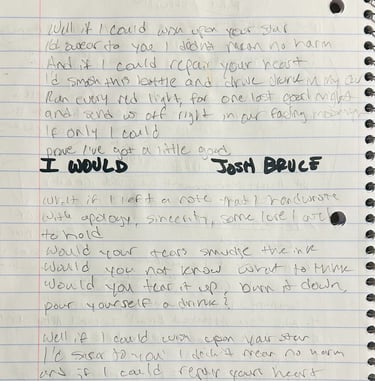 Well if I could wish upon your star
I'd swear to you I didn't mean no harm
And if I could repair your heart
I'd smash this bottle and drive drunk in my car
Ran every red light, for one last good night
and send us off right in our fading
If only I could
prove I've got a little good
I WOULD JOSH BRUCE
What if I left a note that I handwrote
with apology, sincerity, some love I
to hold
Would your tears smudge the ink
Would you not know what to think
Would you tear it up, burn it down,
pour yourself a drink?
Well if I could wish upon your star
I'd swear to you I didn't mean no harm
and if I could repair your heart